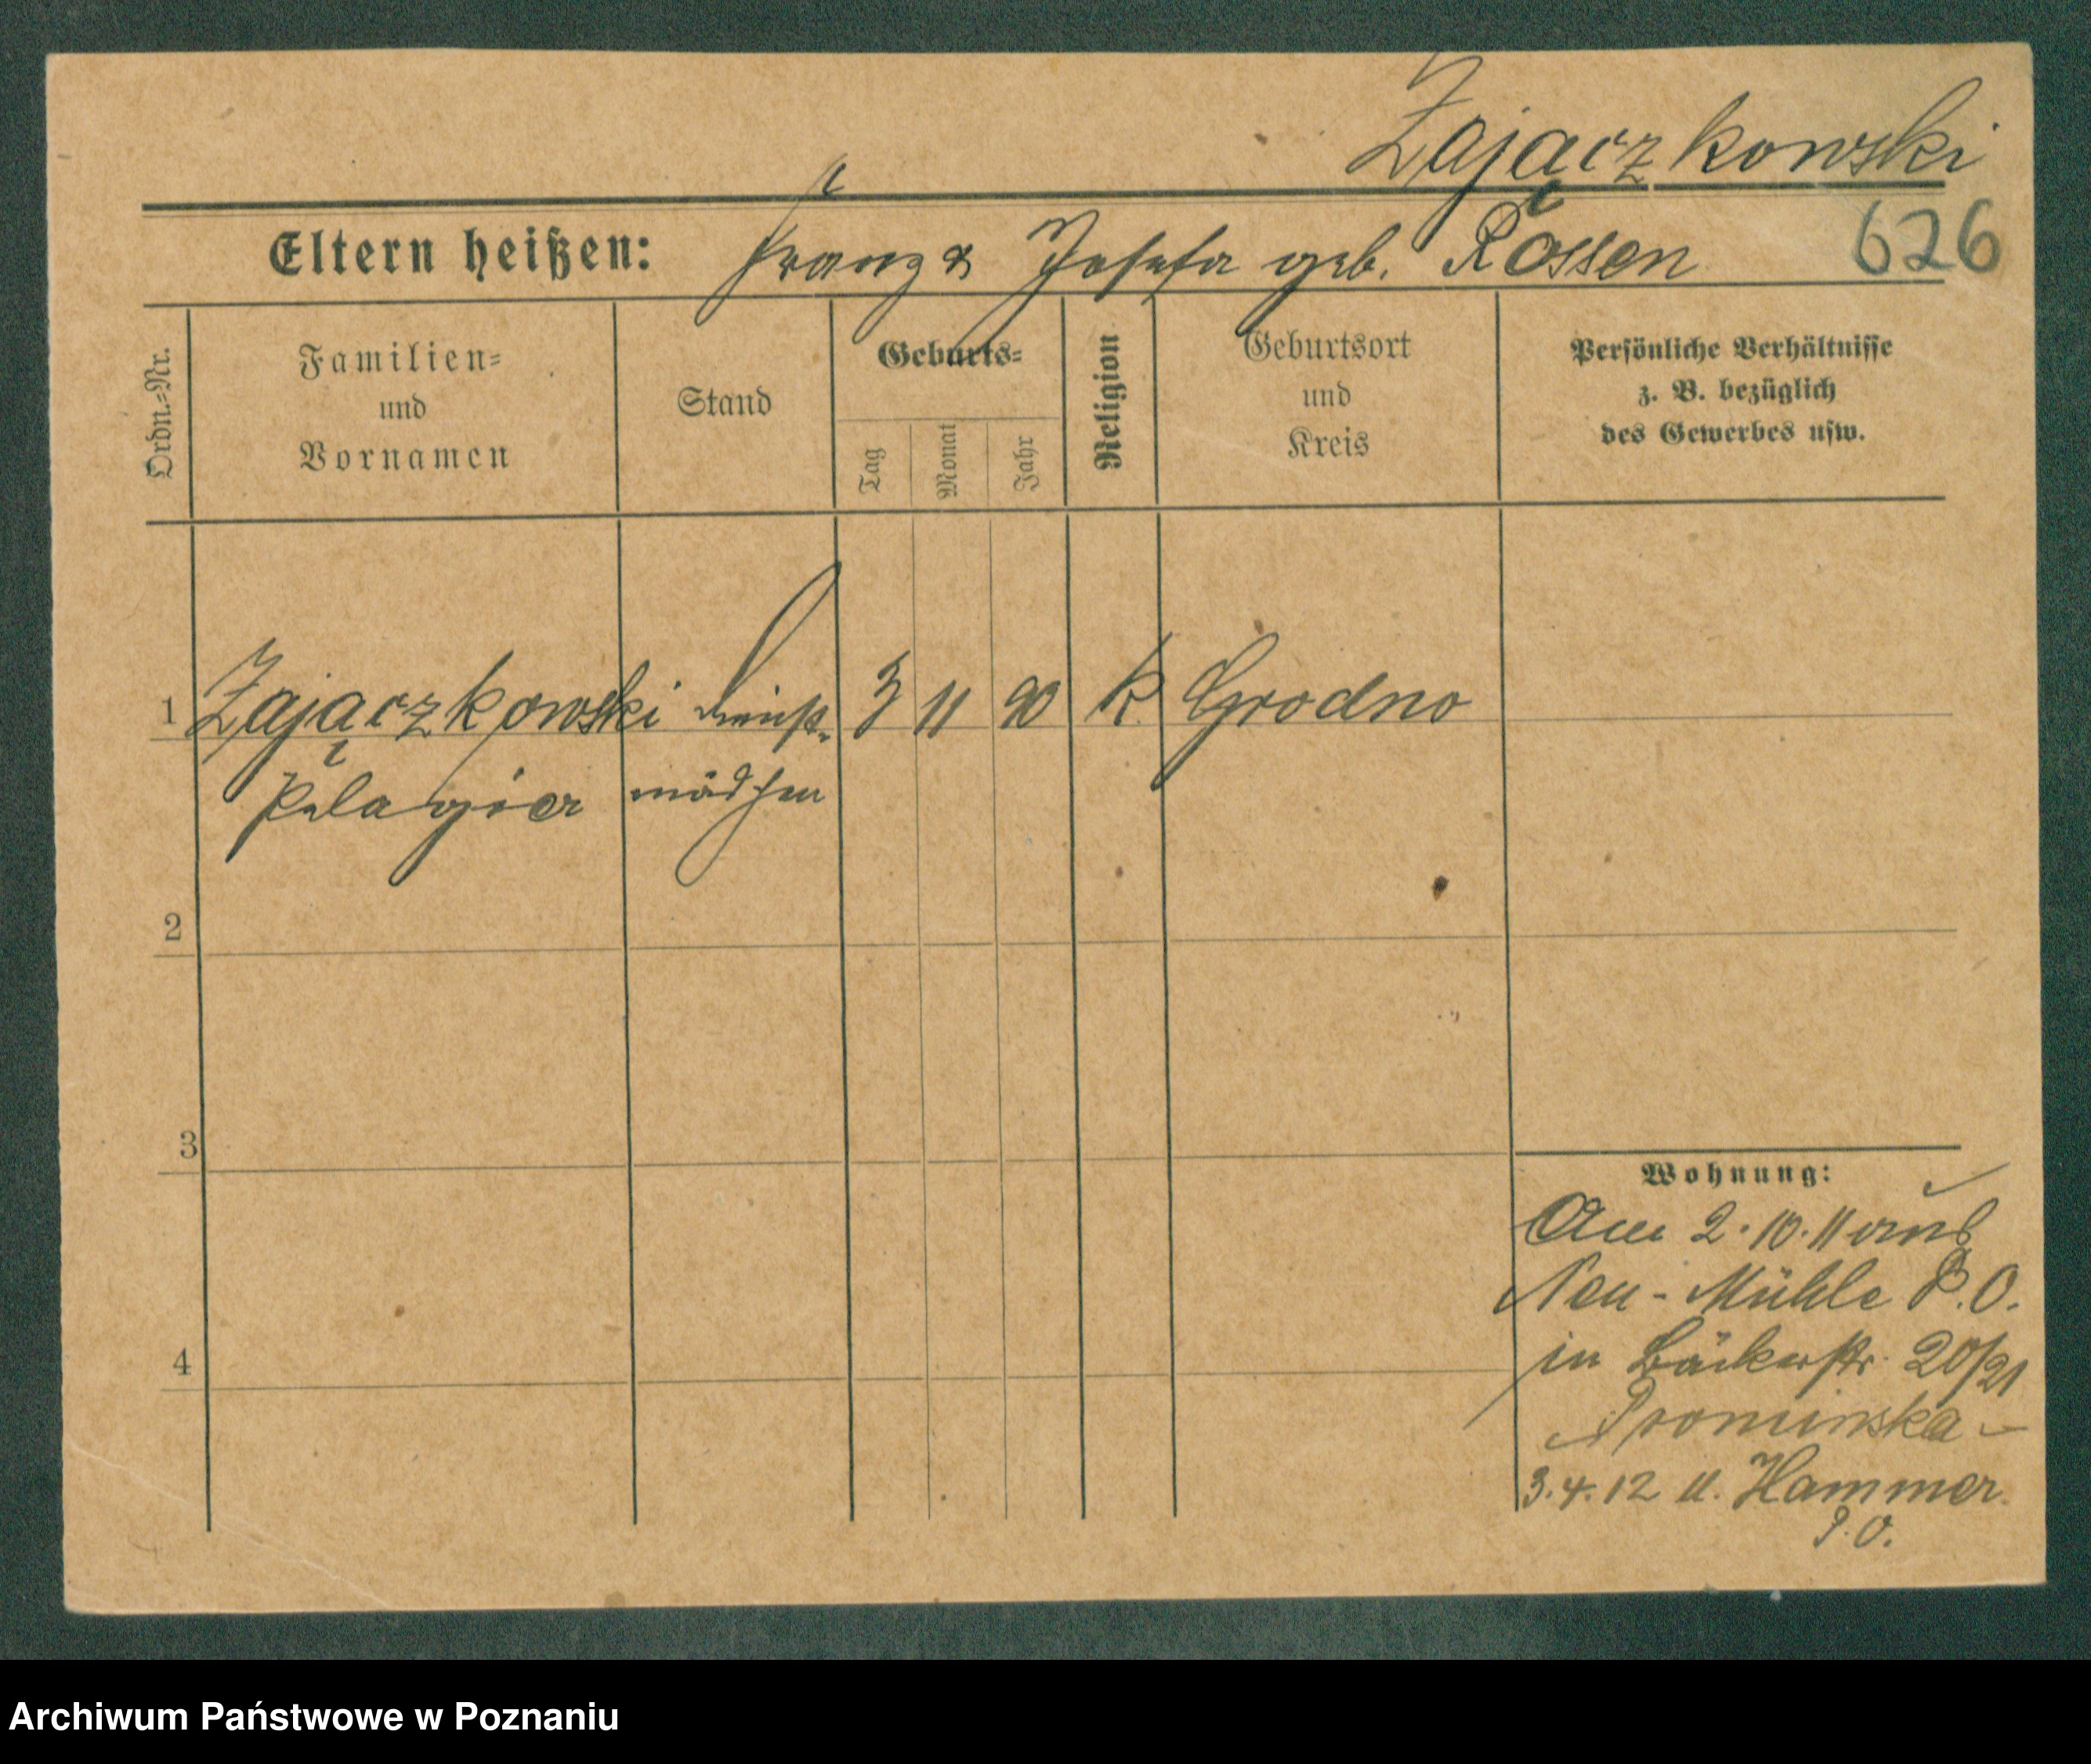 Zajączkowski
Eltern heißen: Franz & Josefa geb. Rossen 626
Ordn.-Nr.
Familien- und Vornamen
Stand
Geburts-
Tag
Monat
Jahr
Religion
Geburtsort und Kreis
Persönliche Verhältnisse
z. B. bezüglich
des Gewerbes usw.
1 Zajączkowski Dienst- 3 11 90 K. Grodno
Pelagia mädchen
2
3
4
Wohnung:
Am 2.10.11 aus
Neu-Mühle P.O.
in Bäckerstr. 20/21
3.4.12 n. Hammer
P.O.
Archiwum Państwowe w Poznaniu